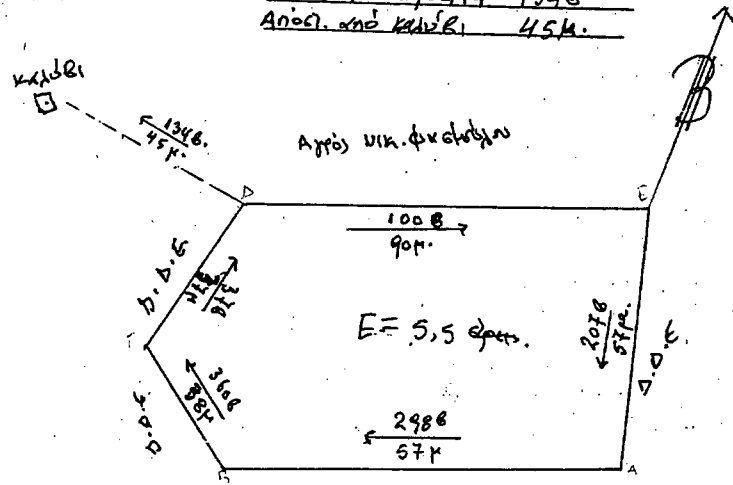 Απόστ. από καλύβι 45μ.
καλύβι
134β.
45μ.
Αγρός νικ.
Δ
Ε
100β
90μ.
Δ.Δ.Ε
37β
Γ
Ε= 5,5 στρεμ.
207β
57μ.
Δ.Δ.Ε
360β
88μ
Δ.Δ.Ε
298β
57μ
Β
Α
Β